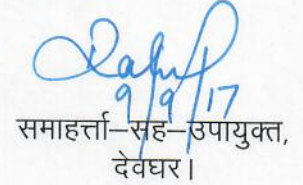 9/9/17
समाहर्त्ता–सह–उपायुक्त,
देवघर।